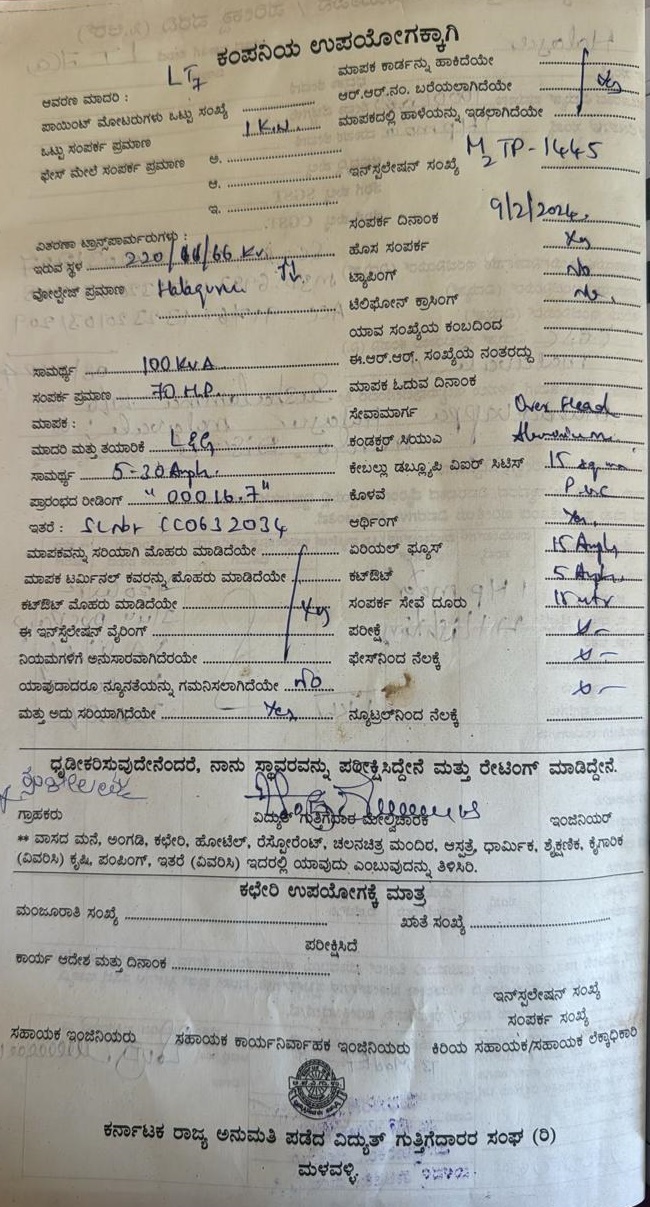 ಕಂಪನಿಯ ಉಪಯೋಗಕ್ಕಾಗಿ
LT7
ಆವರಣ ಮಾದರಿ :
ಪಾಯಿಂಟ್ ಮೋಟರುಗಳು ಒಟ್ಟು ಸಂಖ್ಯೆ
ಒಟ್ಟು ಸಂಪರ್ಕ ಪ್ರಮಾಣ 1 K.W.
ಫೇಸ್ ಮೇಲೆ ಸಂಪರ್ಕ ಪ್ರಮಾಣ ಅ.
ಆ.
ಇ.
ವಿತರಣಾ ಟ್ರಾನ್ಸ್‌ಪಾರ್ಮರುಗಳು :
ಇರುವ ಸ್ಥಳ 220/11/66 Kv.
ವೋಲ್ಟೇಜ್ ಪ್ರಮಾಣ Halaguru
ಸಾಮರ್ಥ್ಯ 100 KVA
ಸಂಪರ್ಕ ಪ್ರಮಾಣ 70 H.P.
ಮಾಪಕ :
ಮಾದರಿ ಮತ್ತು ತಯಾರಿಕೆ L&G
ಸಾಮರ್ಥ್ಯ 5-30 Amph.
ಪ್ರಾರಂಭದ ರೀಡಿಂಗ್ "00016.7"
ಇತರೆ : SLNbr CC0632034
ಮಾಪಕವನ್ನು ಸರಿಯಾಗಿ ಮೊಹರು ಮಾಡಿದೆಯೇ
ಮಾಪಕ ಟರ್ಮಿನಲ್ ಕವರನ್ನು ಮೊಹರು ಮಾಡಿದೆಯೇ
ಕಟ್‌ಔಟ್ ಮೊಹರು ಮಾಡಿದೆಯೇ Yes
ಈ ಇನ್‌ಸ್ಟಲೇಷನ್ ವೈರಿಂಗ್
ನಿಯಮಗಳಿಗೆ ಅನುಸಾರವಾಗಿದೆರಯೇ
ಯಾವುದಾದರೂ ನ್ಯೂನತೆಯನ್ನು ಗಮನಿಸಲಾಗಿದೆಯೇ No
ಮತ್ತು ಅದು ಸರಿಯಾಗಿದೆಯೇ Yes
ಮಾಪಕ ಕಾರ್ಡನ್ನು ಹಾಕಿದೆಯೇ
ಆರ್.ಆರ್.ನಂ. ಬರೆಯಲಾಗಿದೆಯೇ Yes
ಮಾಪಕದಲ್ಲಿ ಹಾಳೆಯನ್ನು ಇಡಲಾಗಿದೆಯೇ
ಇನ್‌ಸ್ಪಲೇಷನ್ ಸಂಖ್ಯೆ M2TP-1445
ಸಂಪರ್ಕ ದಿನಾಂಕ 9/2/2024.
ಹೊಸ ಸಂಪರ್ಕ Yes
ಟ್ಯಾಪಿಂಗ್ No
ಟೆಲಿಫೋನ್ ಕ್ರಾಸಿಂಗ್ No.
ಯಾವ ಸಂಖ್ಯೆಯ ಕಂಬದಿಂದ
ಈ.ಆರ್.ಆರ್. ಸಂಖ್ಯೆಯ ನಂತರದ್ದು
ಮಾಪಕ ಓದುವ ದಿನಾಂಕ
ಸೇವಾಮಾರ್ಗ Over Head
ಕಂಡಕ್ಟರ್ ಸಿಯುಎ Alumenium
ಕೇಬಲ್ಲು ಡಬ್ಲ್ಯೂಪಿ ವಿಐರ್ ಸಿಟಿಸ್ 15 sq mm
ಕೊಳವೆ P.v.c
ಆರ್ಥಿಂಗ್ Yes.
ಏರಿಯಲ್ ಫ್ಯೂಸ್ 15 Amph
ಕಟ್‌ಔಟ್ 5 Amph.
ಸಂಪರ್ಕ ಸೇವೆ ದೂರು 15 mtr
ಪರೀಕ್ಷೆ
ಫೇಸ್‌ನಿಂದ ನೆಲಕ್ಕೆ
ನ್ಯೂಟ್ರಲ್‌ನಿಂದ ನೆಲಕ್ಕೆ
ಧೃಡೀಕರಿಸುವುದೇನೆಂದರೆ, ನಾನು ಸ್ಥಾವರವನ್ನು ಪರೀಕ್ಷಿಸಿದ್ದೇನೆ ಮತ್ತು ರೇಟಿಂಗ್ ಮಾಡಿದ್ದೇನೆ.
ಗ್ರಾಹಕರು ವಿದ್ಯುತ್ ಗುತ್ತಿಗೆದಾರ ಮೇಲ್ವಿಚಾರಕ ಇಂಜಿನಿಯರ್
** ವಾಸದ ಮನೆ, ಅಂಗಡಿ, ಕಛೇರಿ, ಹೋಟೆಲ್, ರೆಸ್ಟೋರೆಂಟ್, ಚಲನಚಿತ್ರ ಮಂದಿರ, ಆಸ್ಪತ್ರೆ, ಧಾರ್ಮಿಕ, ಶೈಕ್ಷಣಿಕ, ಕೈಗಾರಿಕ
(ವಿವರಿಸಿ) ಕೃಷಿ, ಪಂಪಿಂಗ್, ಇತರೆ (ವಿವರಿಸಿ) ಇದರಲ್ಲಿ ಯಾವುದು ಎಂಬುವುದನ್ನು ತಿಳಿಸಿರಿ.
ಕಛೇರಿ ಉಪಯೋಗಕ್ಕೆ ಮಾತ್ರ
ಮಂಜೂರಾತಿ ಸಂಖ್ಯೆ ಖಾತೆ ಸಂಖ್ಯೆ
ಪರೀಕ್ಷಿಸಿದೆ
ಕಾರ್ಯ ಆದೇಶ ಮತ್ತು ದಿನಾಂಕ
ಇನ್‌ಸ್ಪಲೇಷನ್ ಸಂಖ್ಯೆ
ಸಂಪರ್ಕ ಸಂಖ್ಯೆ
ಸಹಾಯಕ ಇಂಜಿನಿಯರು ಸಹಾಯಕ ಕಾರ್ಯನಿರ್ವಾಹಕ ಇಂಜಿನಿಯರು ಕಿರಿಯ ಸಹಾಯಕ/ಸಹಾಯಕ ಲೆಕ್ಕಾಧಿಕಾರಿ
ಕರ್ನಾಟಕ ರಾಜ್ಯ ಅನುಮತಿ ಪಡೆದ ವಿದ್ಯುತ್ ಗುತ್ತಿಗೆದಾರರ ಸಂಘ (ರಿ)
ಮಳವಳ್ಳಿ.